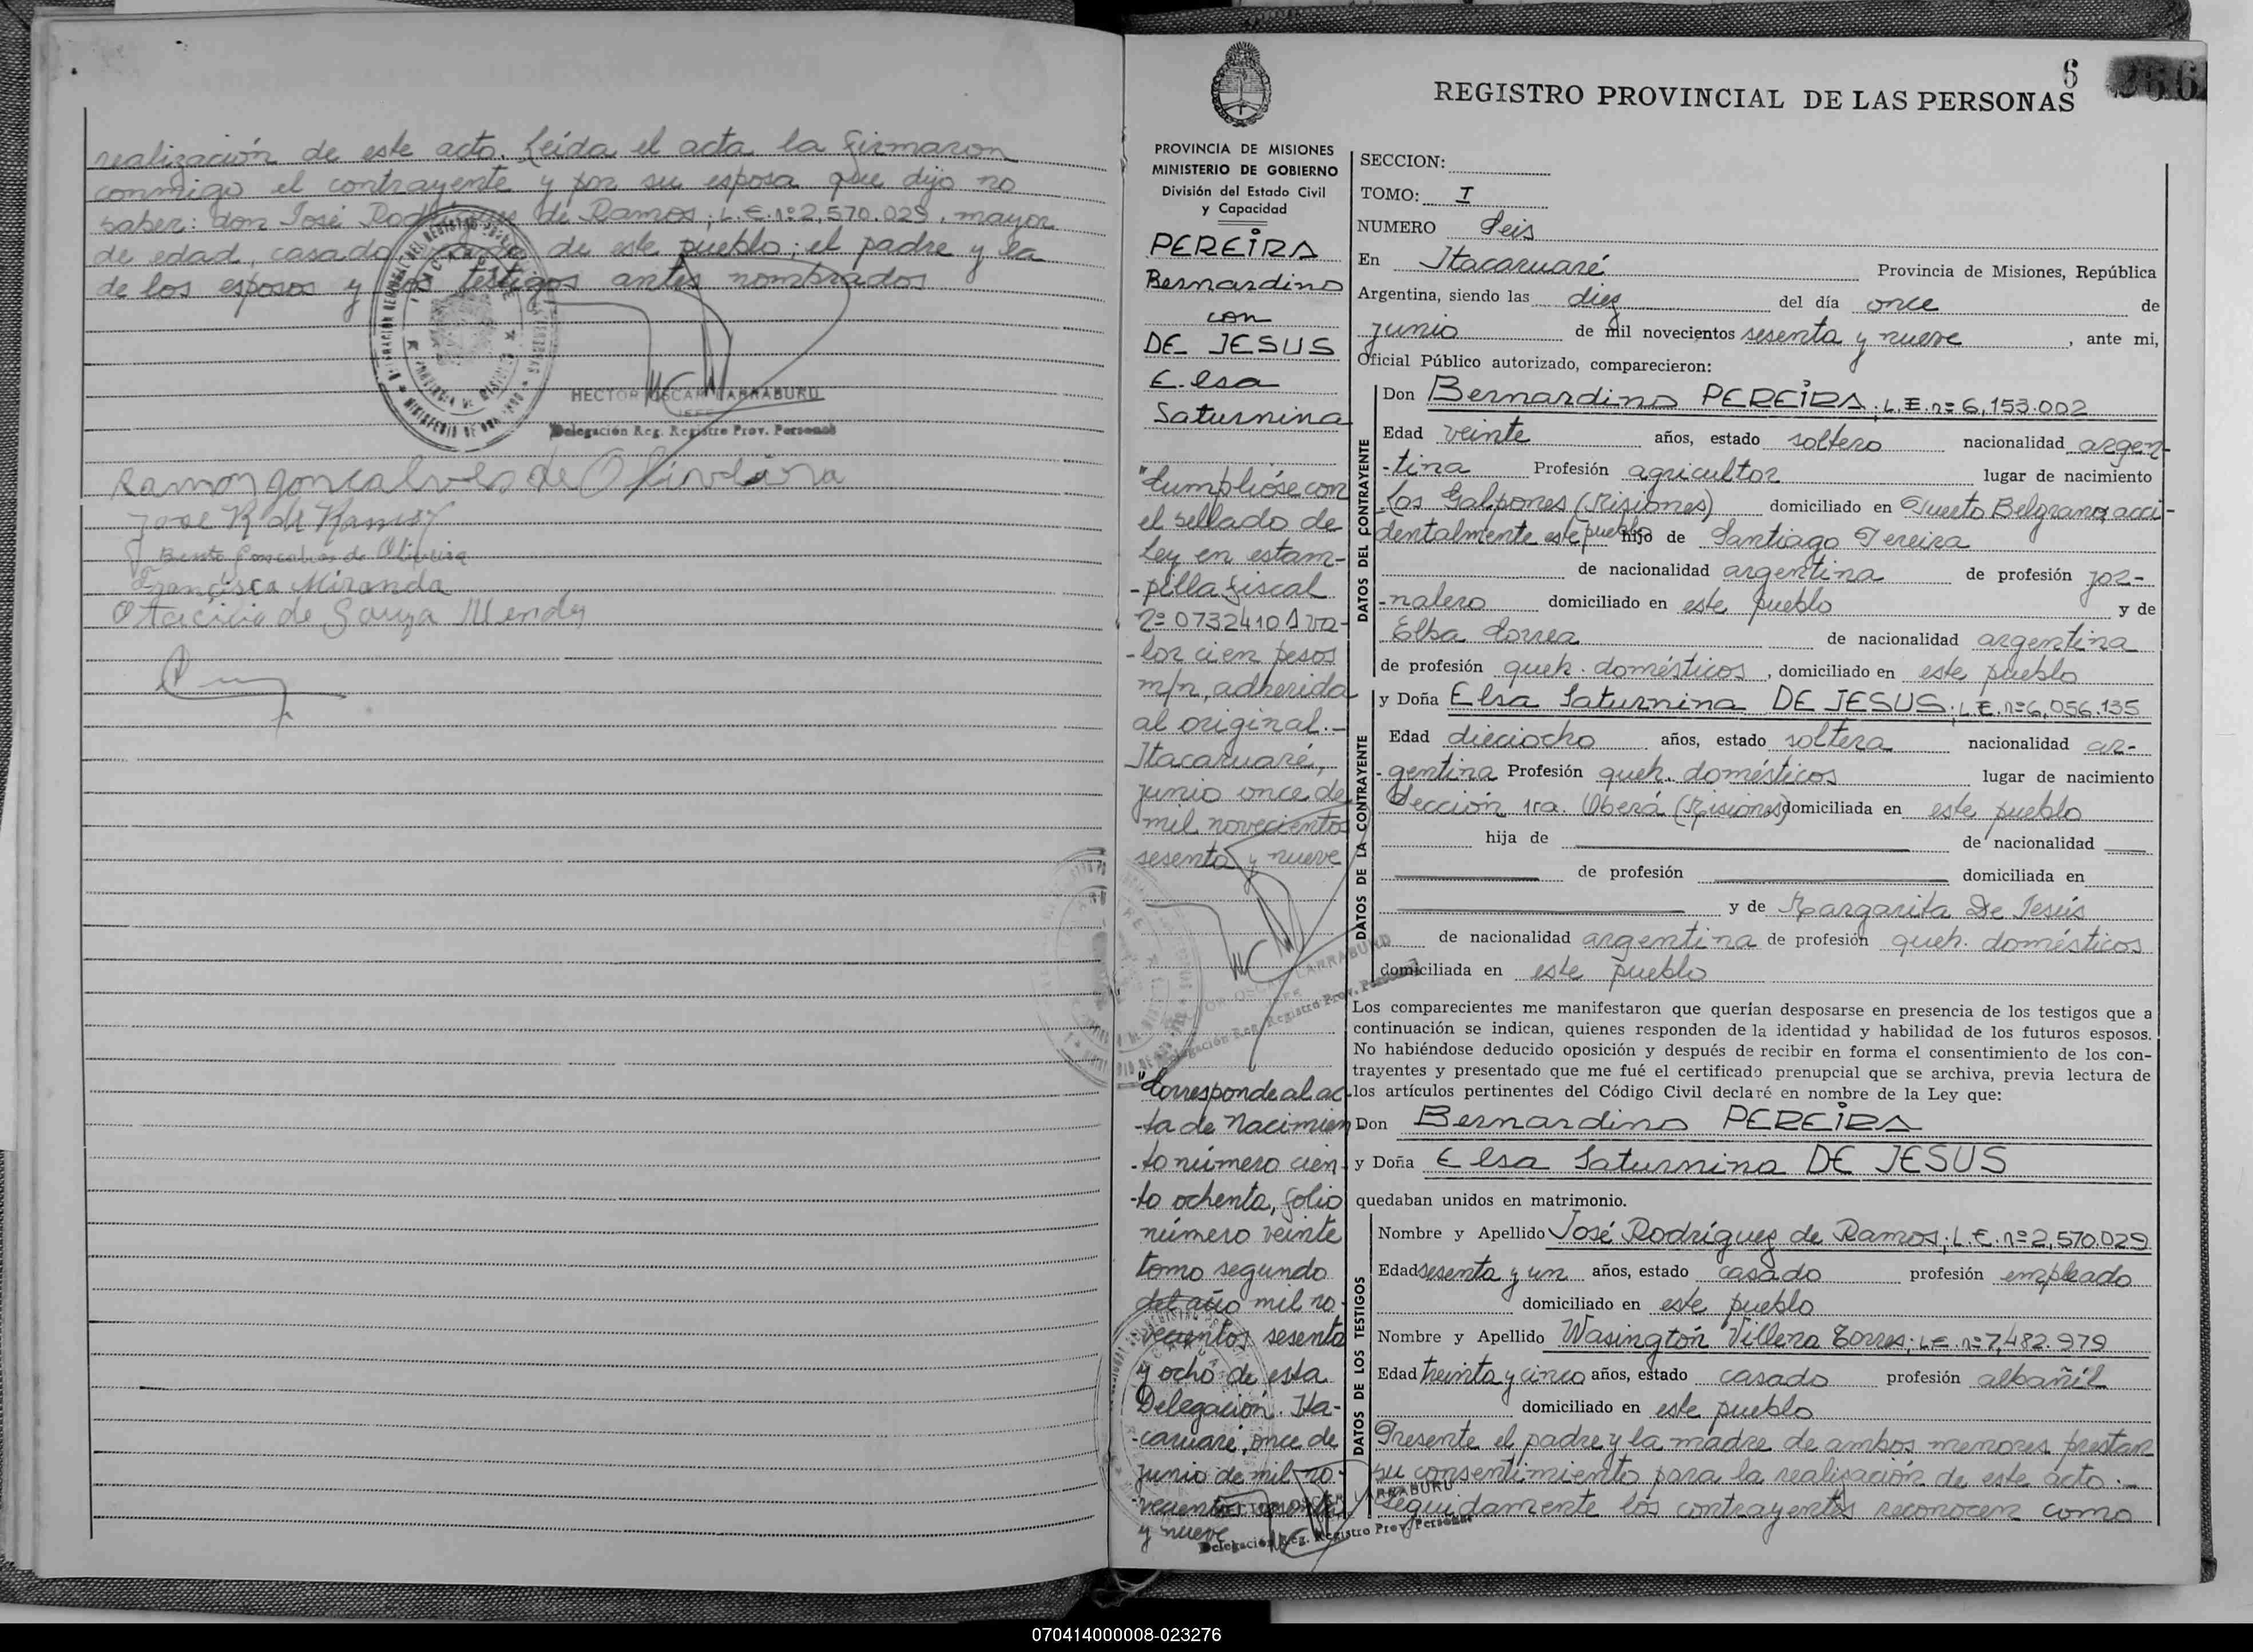 realización de este acto. Leída el acta la firmaron
conmigo el contrayente y por su esposa que dijo no
saber: don José Rodríguez de Ramos; L.E. nº 2,570.029, mayor
de edad, casado, de este pueblo; el padre y la
de los esposos y los testigos antes nombrados
HECTOR OSCAR LARRABURU
JEFE
Delegación Reg. Registro Prov. Personas
Ramon goncalves de Oliveira
Jose R de Ramos
Bento Goncalves de Oliveira
Francisca Miranda
Otacicio de Souza Mendes
6
266
REGISTRO PROVINCIAL DE LAS PERSONAS
PROVINCIA DE MISIONES
MINISTERIO DE GOBIERNO
División del Estado Civil
y Capacidad
PEREIRA
Bernardino
con
DE JESUS
Elsa
Saturnina
"Cumplióse con
el sellado de
ley en estam-
-pilla fiscal
Nº 0732410 A va-
-lor cien pesos
m/n, adherida
al original.-
Itacaruaré,
junio once de
mil novecientos
sesenta y nueve
"Corresponde al ac-
-ta de Nacimien
-to número cien-
-to ochenta, folio
número veinte
tomo segundo
del año mil no-
vecientos sesenta
y ocho de esta
Delegación. Ita-
-caruaré, once de
junio de mil no-
-vecientos sesenta
y nueve
Delegación Reg. Registro Prov. Personas
SECCION:
TOMO: I
NUMERO Seis
En Itacaruaré Provincia de Misiones, República
Argentina, siendo las diez del día once de
junio de mil novecientos sesenta y nueve, ante mi,
Oficial Público autorizado, comparecieron:
DATOS DEL CONTRAYENTE
Don Bernardino PEREIRA; L.E. nº 6,153.002
Edad veinte años, estado soltero nacionalidad argen-
-tina Profesión agricultor lugar de nacimiento
Los Galpones (Misiones) domiciliado en Puerto Belgrano, acci-
dentalmente este pueblo hijo de Santiago Pereira
de nacionalidad argentina de profesión jor-
-nalero domiciliado en este pueblo y de
Elba Correa de nacionalidad argentina
de profesión queh. domésticos, domiciliado en este pueblo
DATOS DE LA CONTRAYENTE
y Doña Elsa Saturnina DE JESUS; L.E. nº 6,056.135
Edad dieciocho años, estado soltera nacionalidad ar-
-gentina Profesión queh. domésticos lugar de nacimiento
Sección 1ra. Oberá (Misiones) domiciliada en este pueblo
hija de de nacionalidad
de profesión domiciliada en
y de Margarita De Jesús
de nacionalidad argentina de profesión queh. domésticos
domiciliada en este pueblo
Los comparecientes me manifestaron que querían desposarse en presencia de los testigos que a
continuación se indican, quienes responden de la identidad y habilidad de los futuros esposos.
No habiéndose deducido oposición y después de recibir en forma el consentimiento de los con-
trayentes y presentado que me fué el certificado prenupcial que se archiva, previa lectura de
los artículos pertinentes del Código Civil declaré en nombre de la Ley que:
Don Bernardino PEREIRA
y Doña Elsa Saturnina DE JESUS
quedaban unidos en matrimonio.
DATOS DE LOS TESTIGOS
Nombre y Apellido José Rodríguez de Ramos; L.E. nº 2,570.029
Edad sesenta y un años, estado casado profesión empleado
domiciliado en este pueblo
Nombre y Apellido Wasington Villera Torres; L.E. nº 7,482.979
Edad treinta y cinco años, estado casado profesión albañil
domiciliado en este pueblo
Presente el padre y la madre de ambos menores prestan
su consentimiento para la realización de este acto.-
Seguidamente los contrayentes reconocen como
070414000008-023276